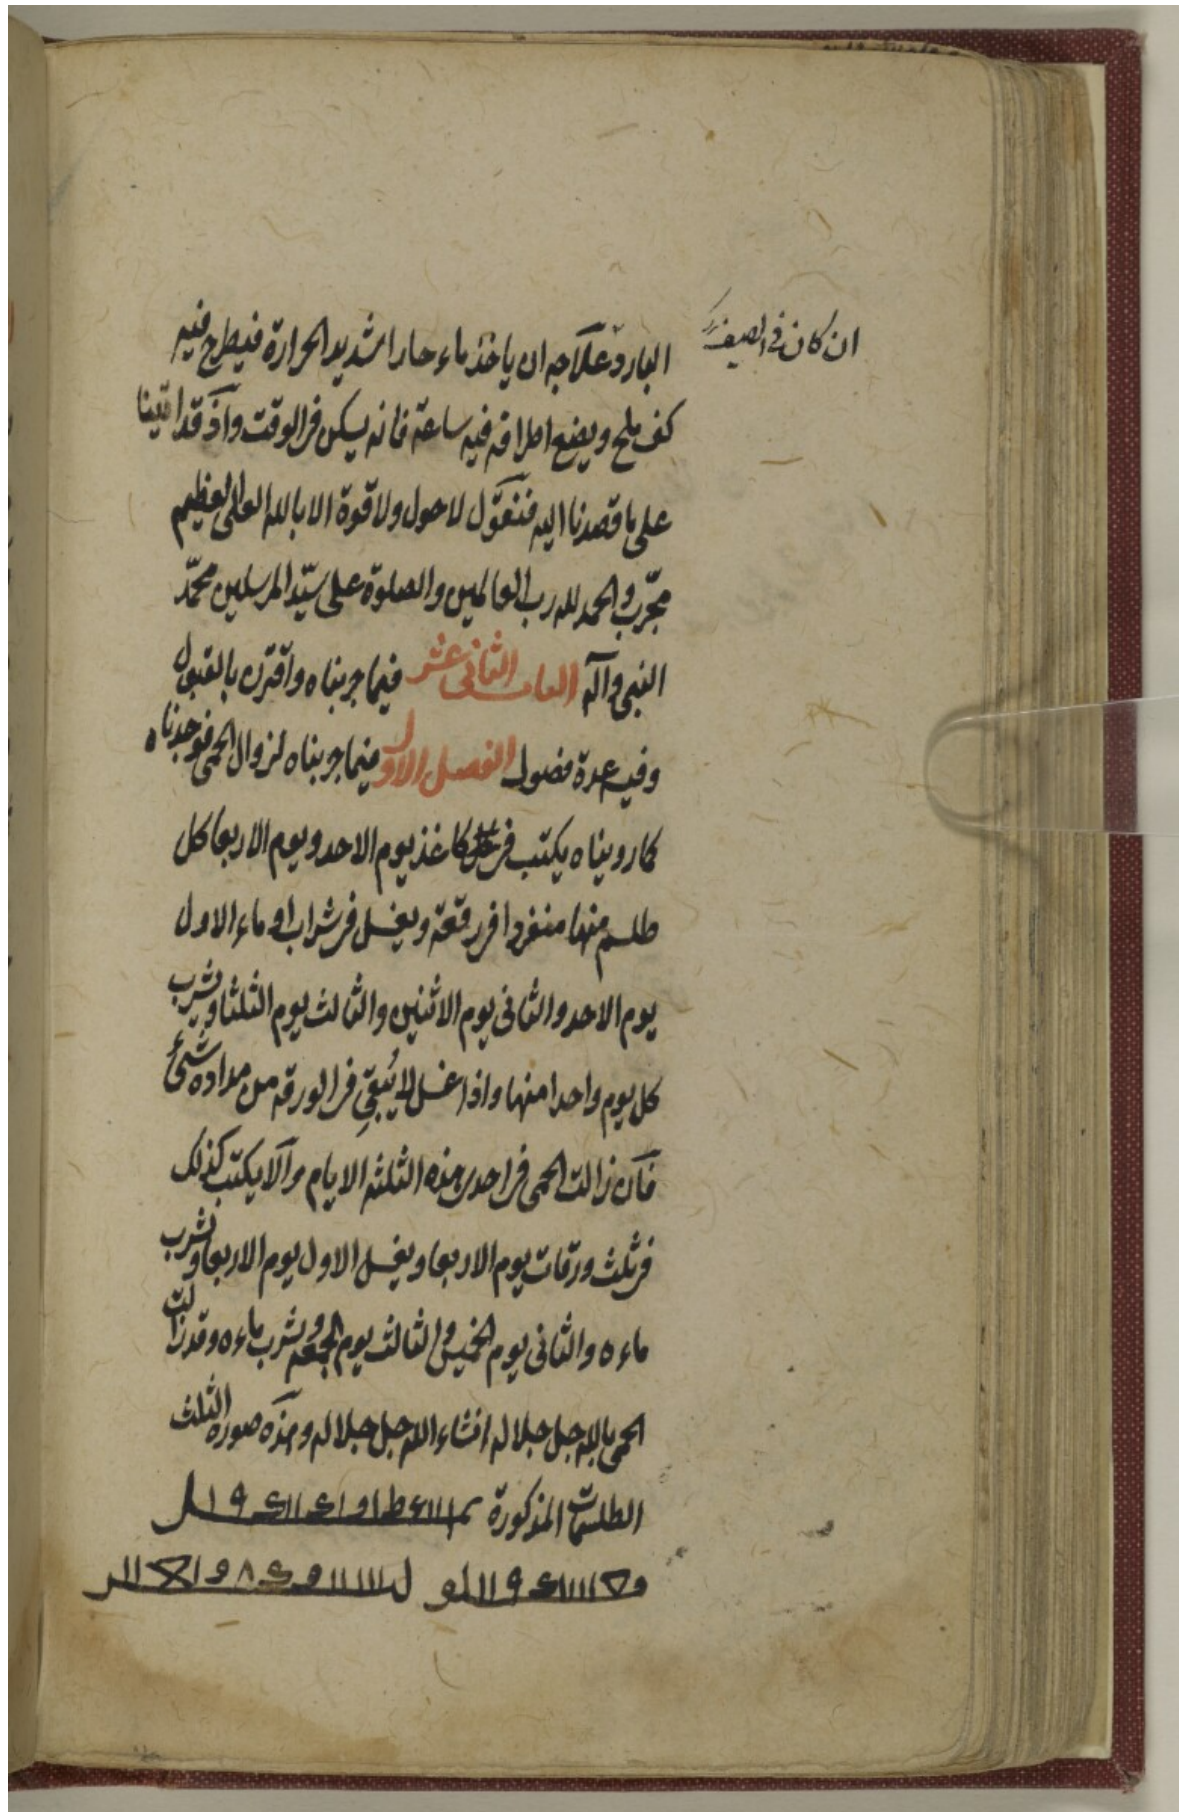 ان كان في الصيف
البارد علاجه ان ياخذ ماء حارا شديد الحرارة فيطرح فيه
كف ملح ويضع اطرافه فيه ساعة فانه يسكن في الوقت واذ قد اتينا
على ما قصدنا اليه فنقول لا حول ولا قوة الا بالله العلى العظيم
مجرّب والحمد لله رب العالمين والصلوة على سيّد المرسلين محمّد
النبى وآله الباب الثانى عشر فيما جربناه واقترن بالقبول
وفيه عدة فصول الفصل الاول فيما جربناه لزوال الحمى فوجدناه
كما رويناه يكتب في كاغذ يوم الاحد ويوم الاربعا كل
طلسم منها منفردا في رقعة ويغسل في شراب او ماء الاول
يوم الاحد والثانى يوم الاثنين والثالث يوم الثلثا ويشرب
كل يوم واحدا منها واذا غسل لا يُبقى في الورقه من مداده شىء
فان زالت الحمى في احدى هذه الثلثه الايام والا يكتب كذلك
في ثلث ورقات يوم الاربعا ويغسل الاول يوم الاربعا ويشرب
ماءه والثانى يوم الخميس والثالث يوم الجمعه ويشرب ماءه وقد زالت
الحمى بالله جل جلاله انشاء الله جل جلاله وهذه صورة الثلث
الطلسمات المذكورة